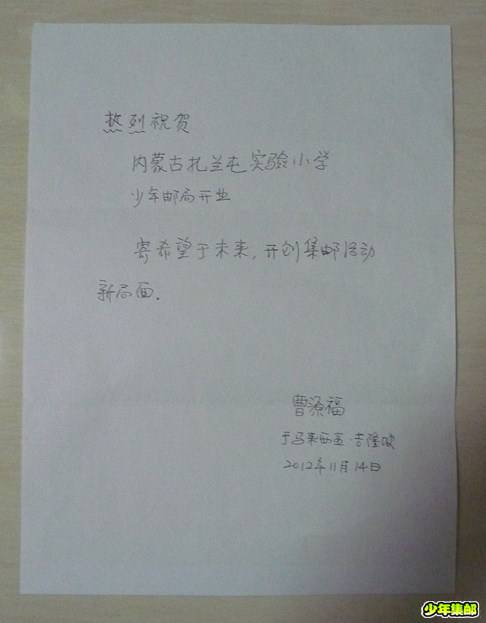 热烈祝贺
内蒙古扎兰屯实验小学
少年邮局开业
寄希望于未来，开创集邮活动
新局面.
曹源福
于马来西亚·吉隆坡
2012年11月14日
少年集邮